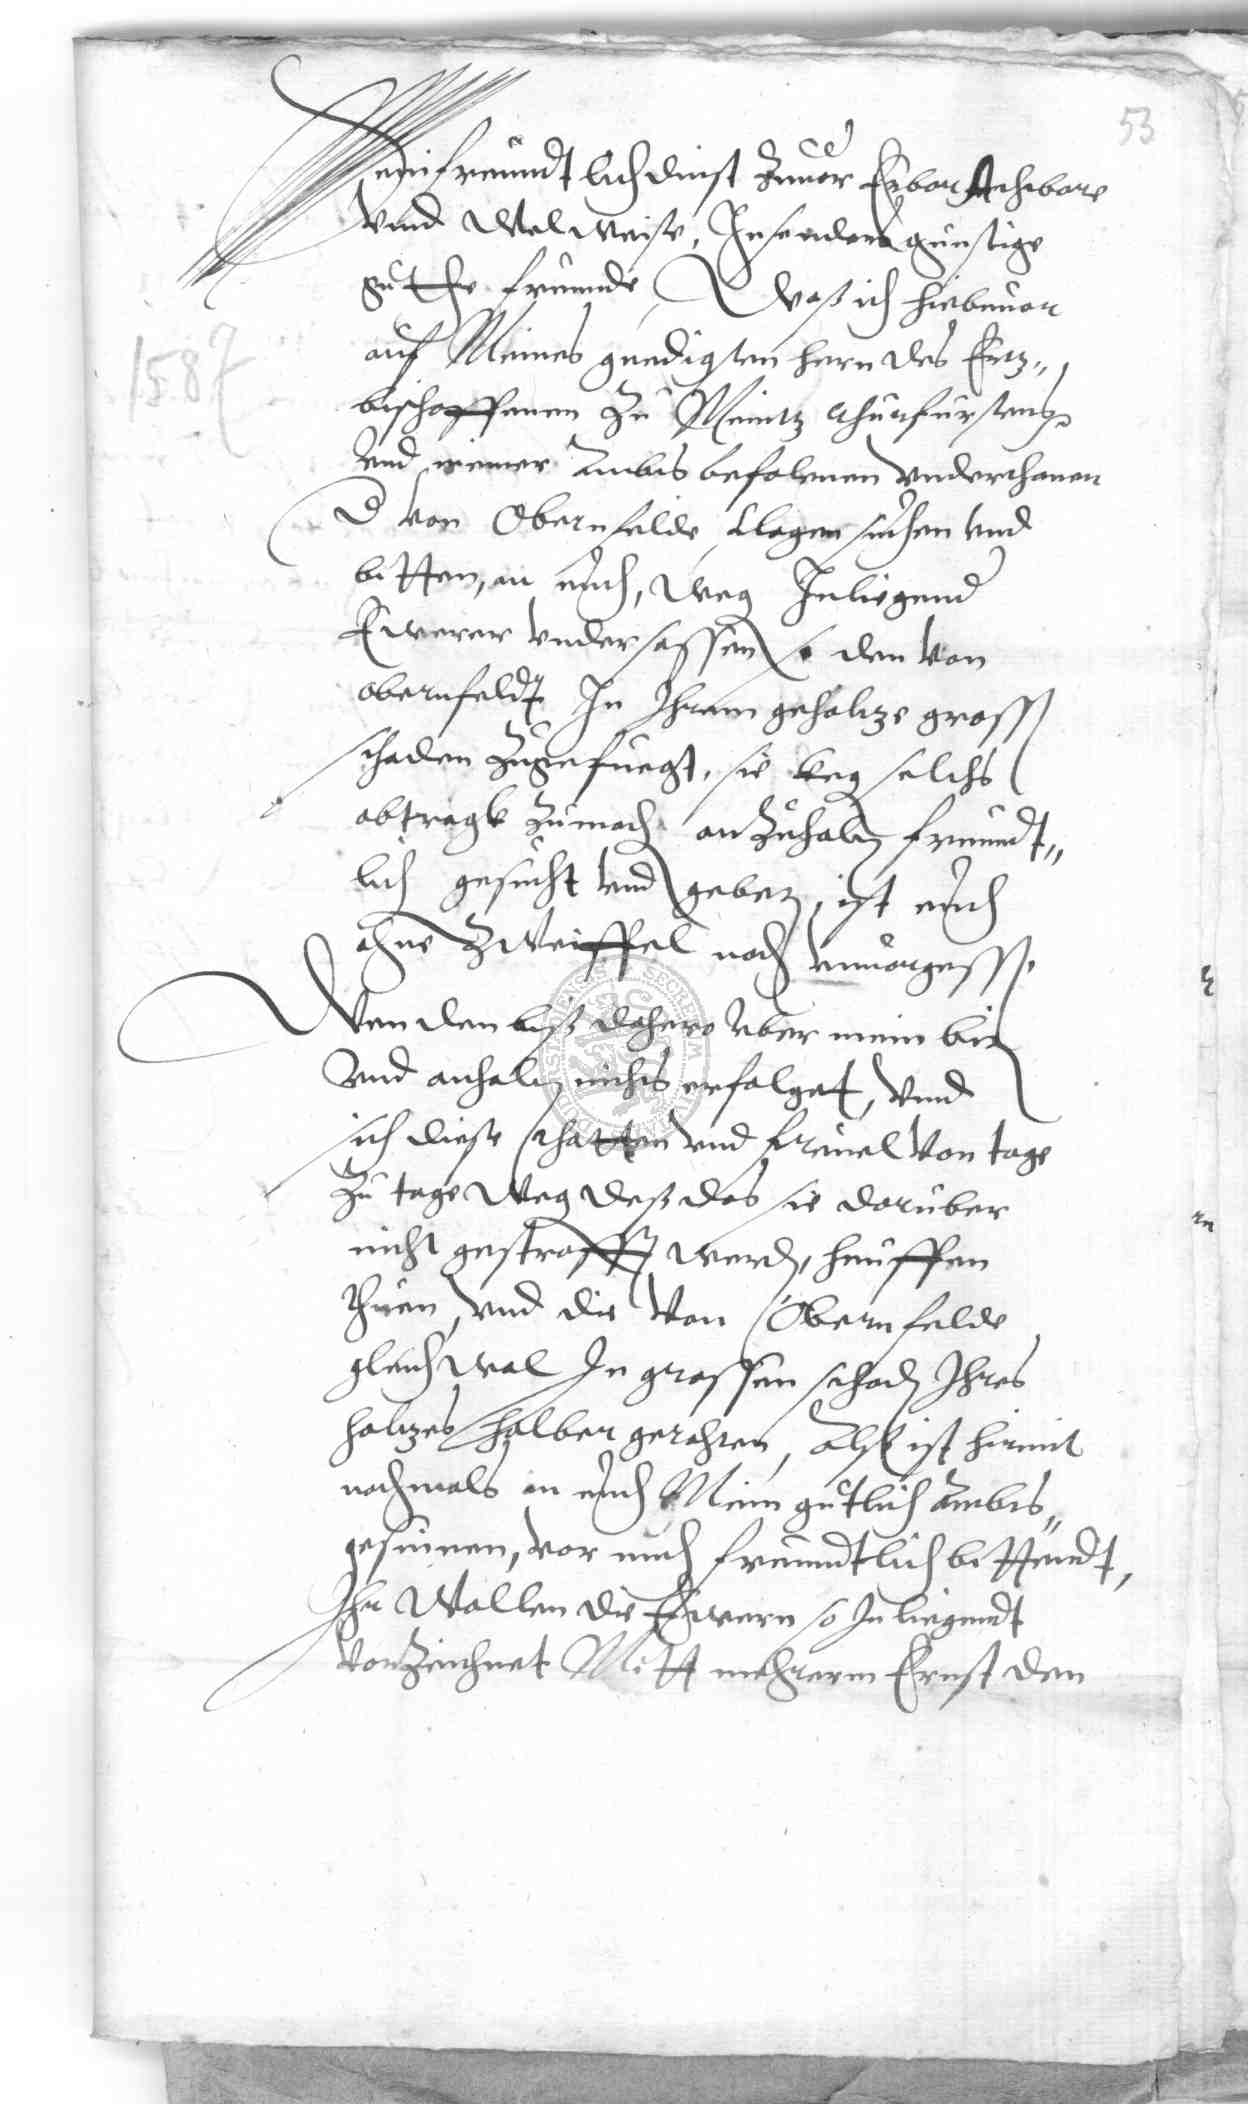 53
Mein freundtlich dinst Zuuor Erbar Achtbare
vnnd Wolweise, Insonders gunstige
guthe freunde, Waß ich hiebeuor
auf Meines gnedigsten hern des Ertz„
bischoffenen Zu Meintz Churfurstens
1587
vnd meiner Ambts befolenen vnderthanen
von Obernfelde, klagen suchen vnd
bitten, an euch, weg Inliegend
Ewerer vndersassen so den von
obernfeldt In Ihrem geholtze gross
schaden Zugefuegt, sie keg solchs
abtragk Zumach anZuhalt freundt„
lich gesucht vnd gebet, ist euch
ohne Zweiffel noch vnuorgesse
Wen den biß dahero vber mein bit
vnd anhalt nichts erfolget, vnnd
sich diese thatten vnd freuel von tage
Zu tage weg deß das sie daruber
nicht gestrafft werd, heuffen
thuen, vnd die von Obernfelde
gleichwol In grossen schad Ihres
holtzes halber gerahten, Alß ist hirmit
nochmals an euch Mein gutlich Ambts„
gesinnen, vor mich freundtlich bittendt,
Ihr Wollen die Ewern so Inliegendt
vorZeichnet Mitt mehrerm Ernst den